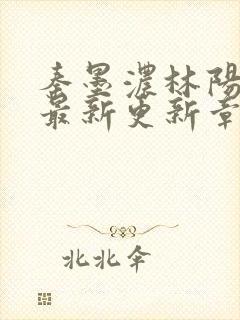 秦墨濃林陽
最新更新章
北北伞